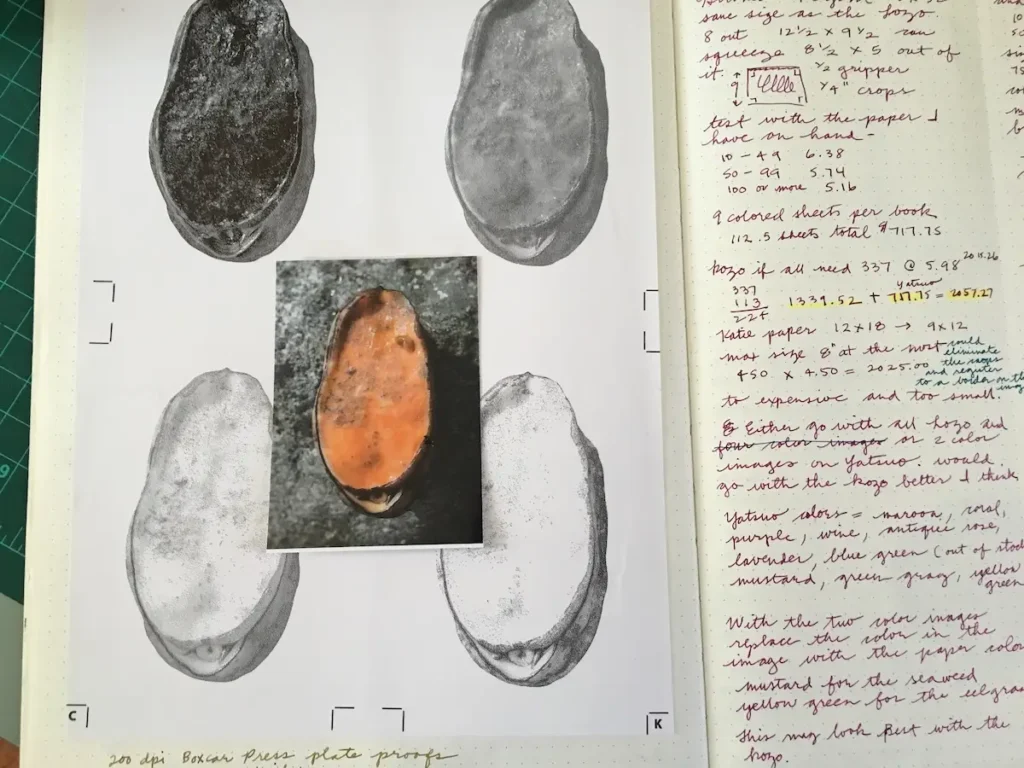 C
K
200 dpi Boxcar Press plate proofs
same size as the kozo.
8 out 12 1/2 x 9 1/2 can
squeeze 8 1/2 x 5 out of
it. 9 1/2 gripper
1/4" crops
test with the paper I
have on hand -
10 - 49 6.38
50 - 99 5.74
100 or more 5.16
9 colored sheets per book
112.5 sheets total $717.75
kozo if all need 337 @ 5.98
337
113
224
1339.52 + 717.75 = 2057.27
Yatsuo
Katie paper 12x18 → 9x12
max size 8" at the most
450 x 4.50 = 2025.00
could
eliminate
the images
and register
to a bolder on the
to expensive and too small.
Either go with all kozo and
four color images or 2 color
images on Yatsuo. would
go with the kozo better I think
Yatsuo colors = maroon, coral,
purple, wine, antique rose,
lavender, blue green (out of stock
mustard, green gray, yellow
green
With the two color images
replace the color in the
image with the paper color
mustard for the seaweed
yellow green for the eelgrass
This may look best with the
kozo.